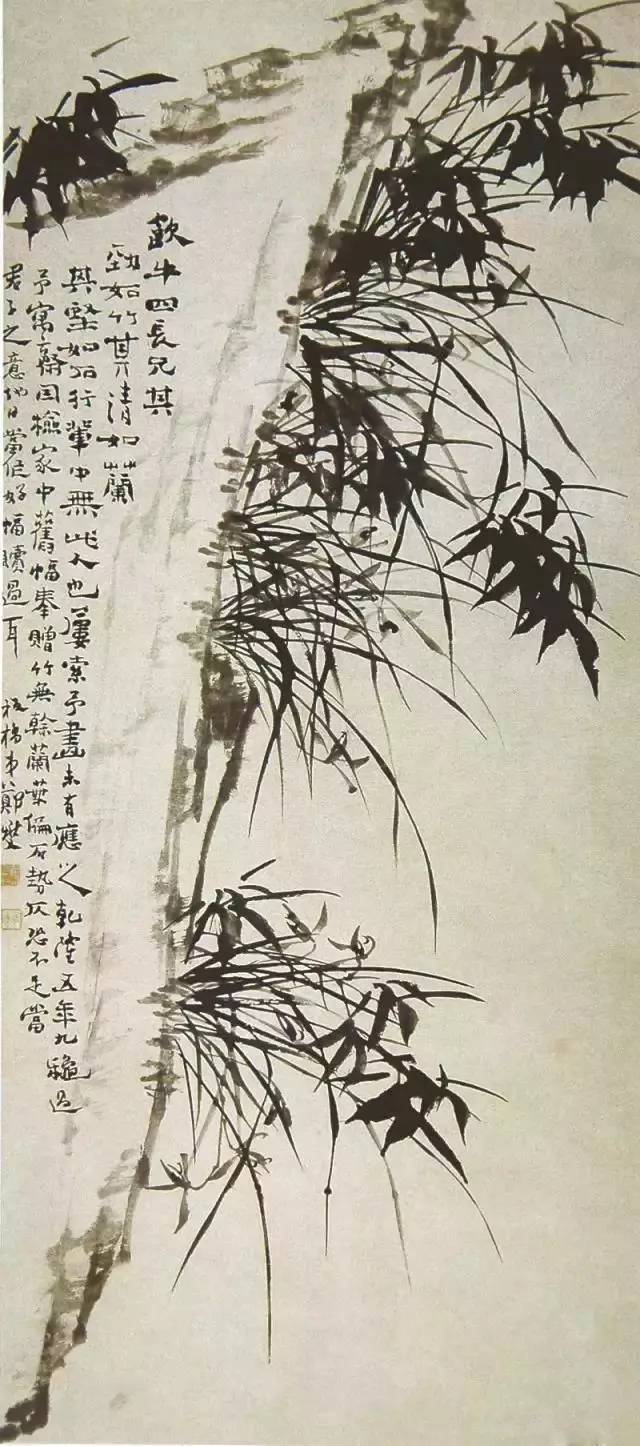 㱃牛四長兄其
勁如竹其清如蘭
其堅如石行輩中無此人也屢索予畫未有應之乾隆五年九穐過
予寓齋因檢家中舊幅奉贈竹無榦蘭葉偏石勢仄恐不足當
君子之意他日當作好幅贖過耳 板橋弟鄭燮